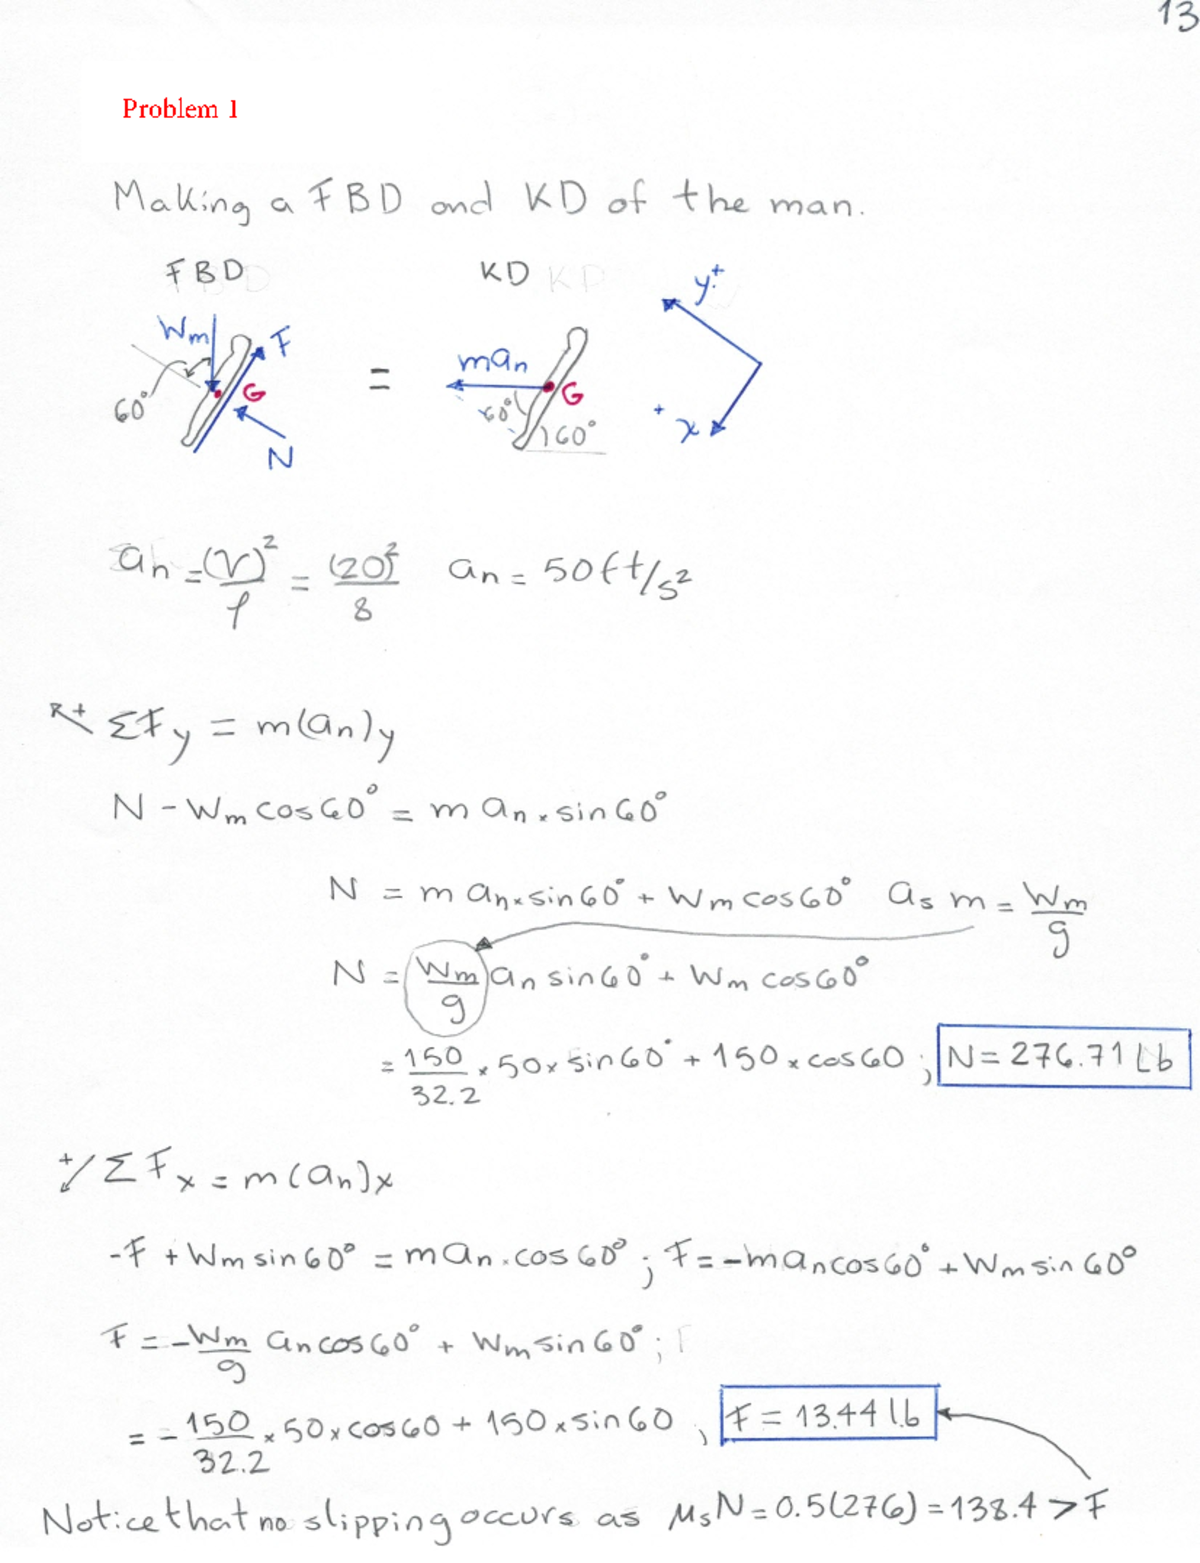 13
Problem 1
Making a FBD and KD of the man.
FBD KD
Wm F G 60° N
=
man G 60° 60°
y+ + x
an = (v)²/ρ = (20)²/8 an = 50ft/s²
+ ΣFy = m(an)y
N - Wm cos60° = m an × sin60°
N = m an × sin60° + Wm cos60° as m = Wm/g
N = (Wm/g) an sin60° + Wm cos60°
= 150/32.2 × 50 × sin60° + 150 × cos60 ; N = 276.71 Lb
+ ΣFx = m(an)x
-F + Wm sin60° = man · cos60° ; F = -man cos60° + Wm sin60°
F = -Wm/g an cos60° + Wm sin60° ;
= - 150/32.2 × 50 × cos60 + 150 × sin60 , F = 13.44 lb
Notice that no slipping occurs as μsN = 0.5(276) = 138.4 > F